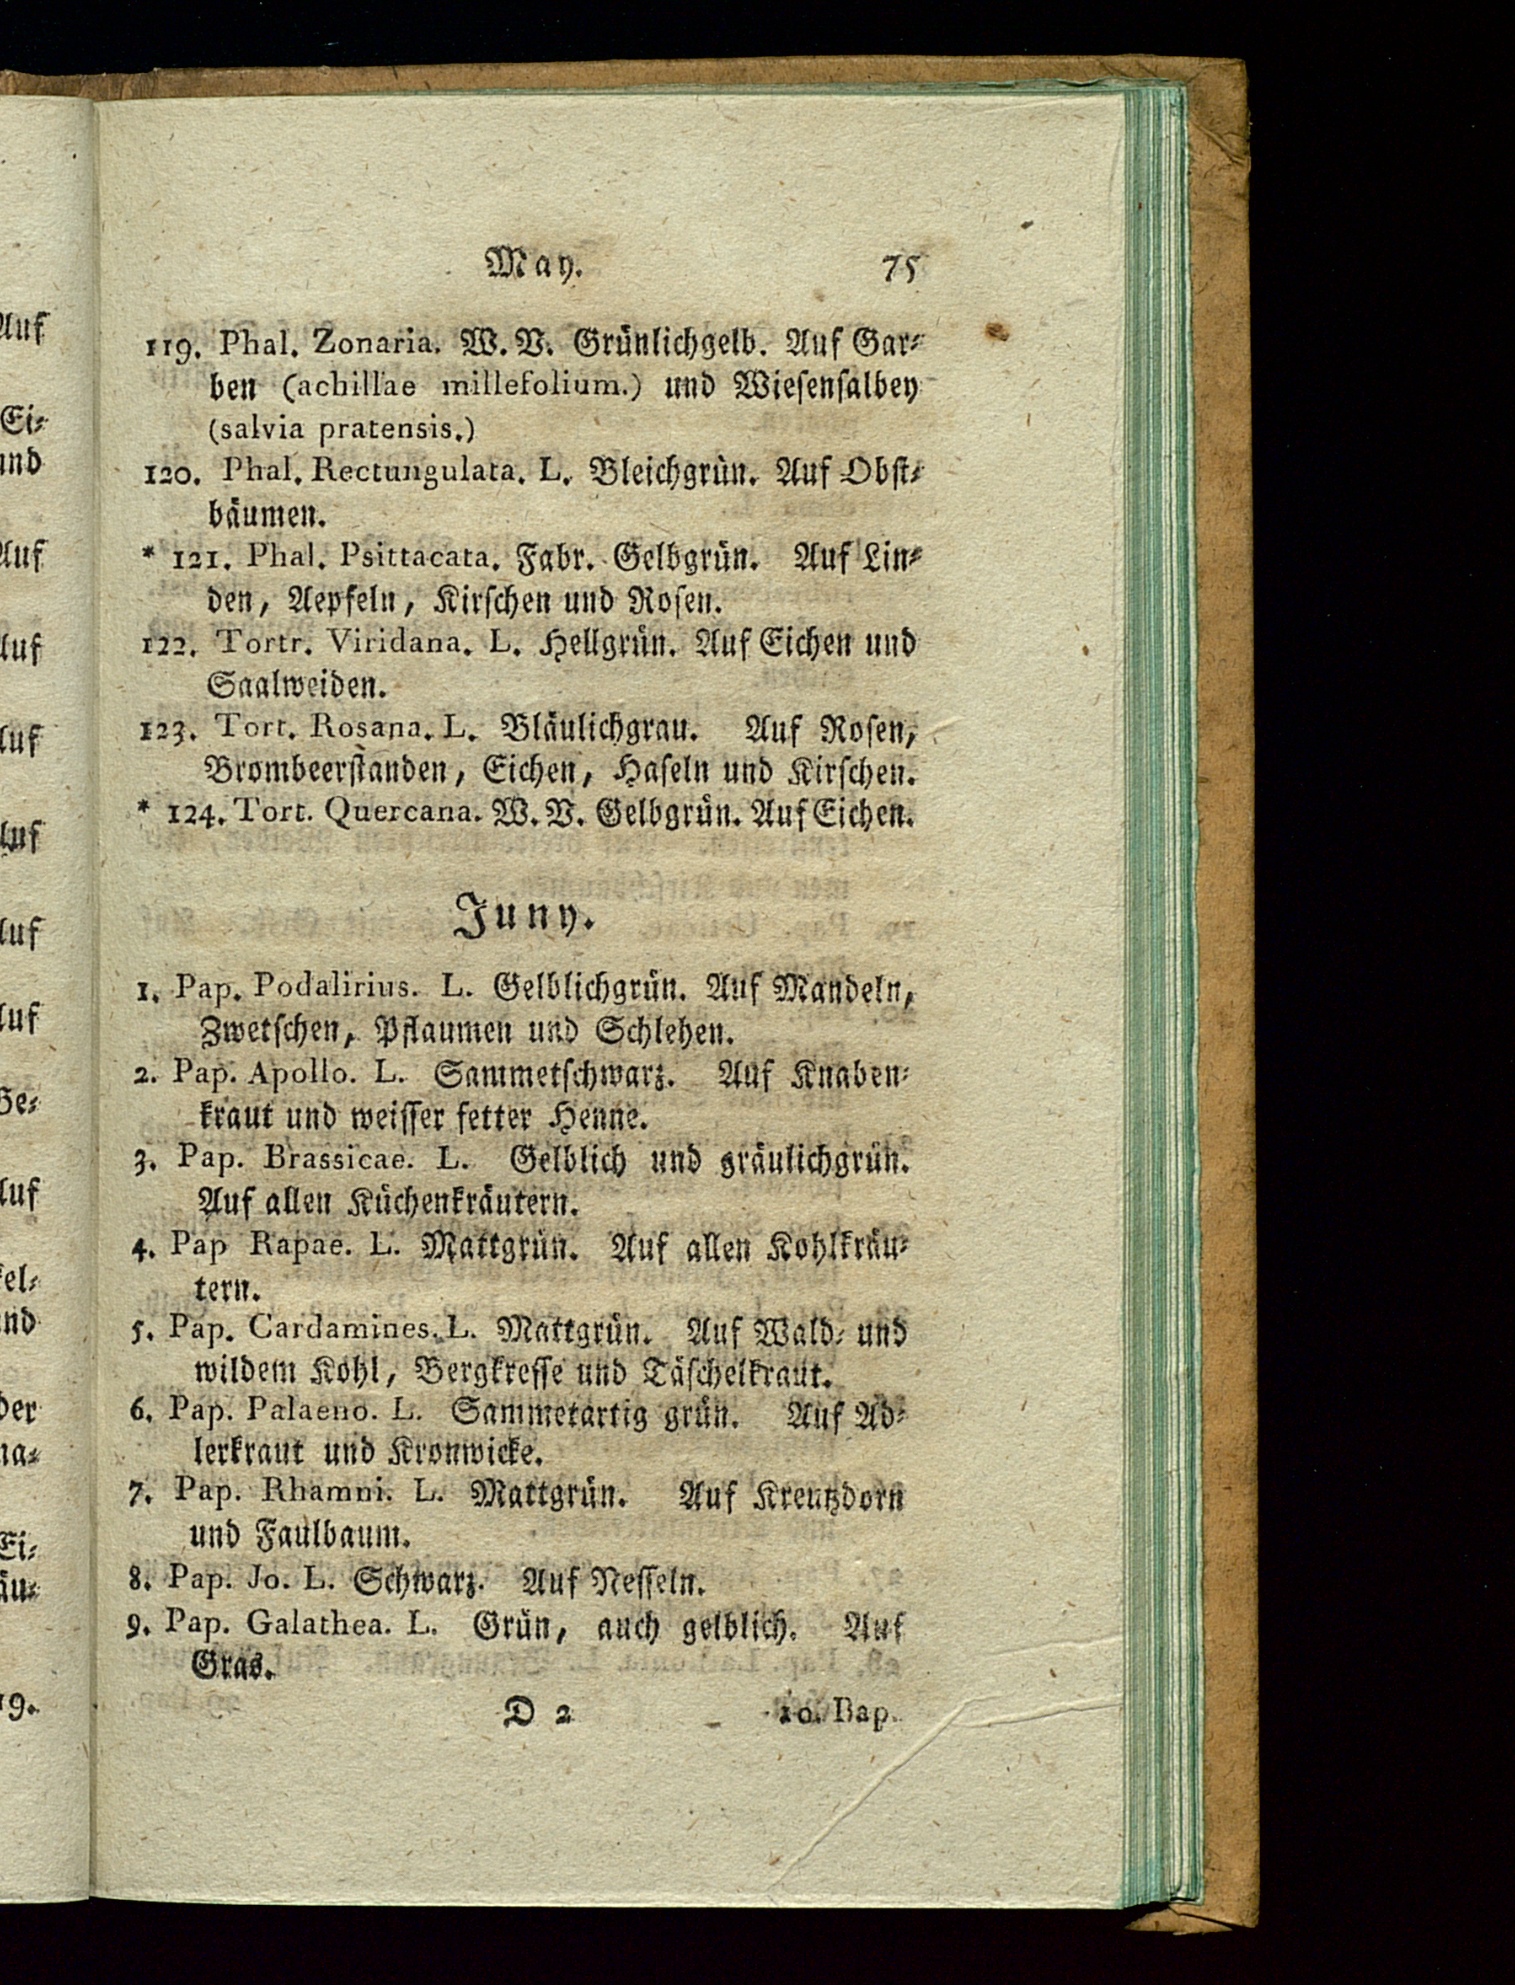 May. 75
119. Phal. Zonaria. W. V. Grünlichgelb. Auf Gar-
ben (achillae millefolium.) und Wiesensalbey
(salvia pratensis.)
120. Phal. Rectungulata. L. Bleichgrün. Auf Obst-
bäumen.
* 121. Phal. Psittacata. Fabr. Gelbgrün. Auf Lin-
den, Aepfeln, Kirschen und Rosen.
122. Tortr. Viridana. L. Hellgrün. Auf Eichen und
Saalweiden.
123. Tort. Rosana. L. Bläulichgrau. Auf Rosen,
Brombeerstanden, Eichen, Haseln und Kirschen.
* 124. Tort. Quercana. W. V. Gelbgrün. Auf Eichen.
Juny.
1. Pap. Podalirius. L. Gelblichgrün. Auf Mandeln,
Zwetschen, Pflaumen und Schlehen.
2. Pap. Apollo. L. Sammetschwarz. Auf Knaben-
kraut und weisser fetter Henne.
3. Pap. Brassicae. L. Gelblich und gräulichgrün.
Auf allen Küchenkräutern.
4. Pap Rapae. L. Mattgrün. Auf allen Kohlkräu-
tern.
5. Pap. Cardamines. L. Mattgrün. Auf Wald- und
wildem Kohl, Bergkresse und Täschelkraut.
6. Pap. Palaeno. L. Sammetartig grün. Auf Ad-
lerkraut und Kronwicke.
7. Pap. Rhamni. L. Mattgrün. Auf Kreutzdorn
und Faulbaum.
8. Pap. Jo. L. Schwarz. Auf Nesseln.
9. Pap. Galathea. L. Grün, auch gelblich. Auf
Gras.
D 2 10. Pap.